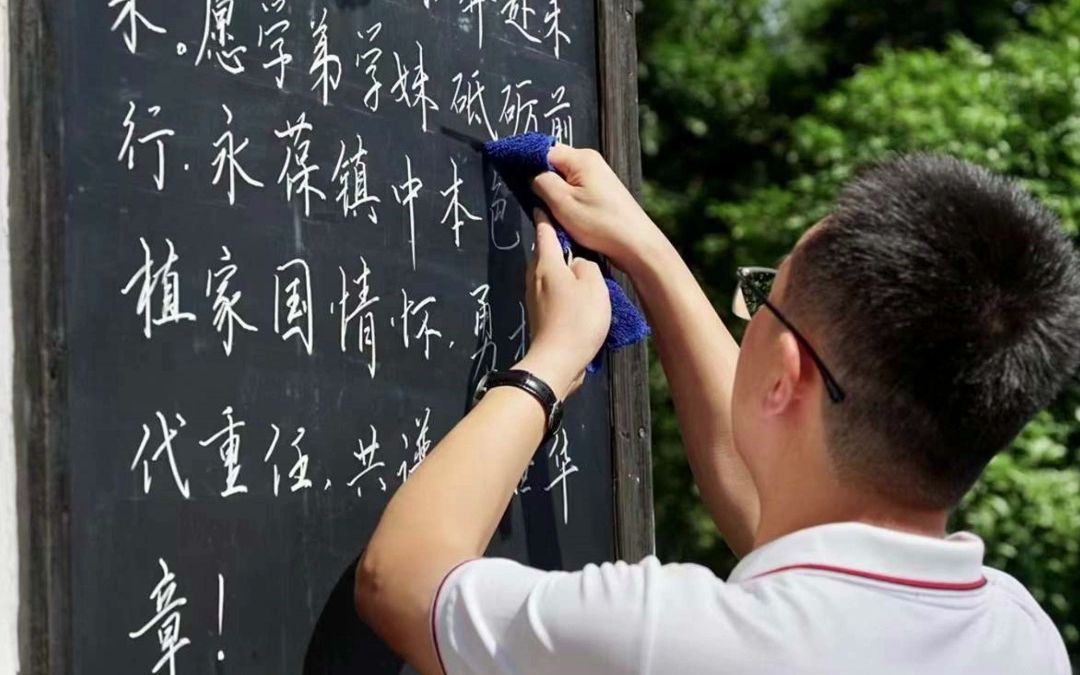 奔赴未
来。愿学弟学妹砥砺前
行,永葆镇中本色,
植家国情怀,勇
代重任,共谱 华
章!